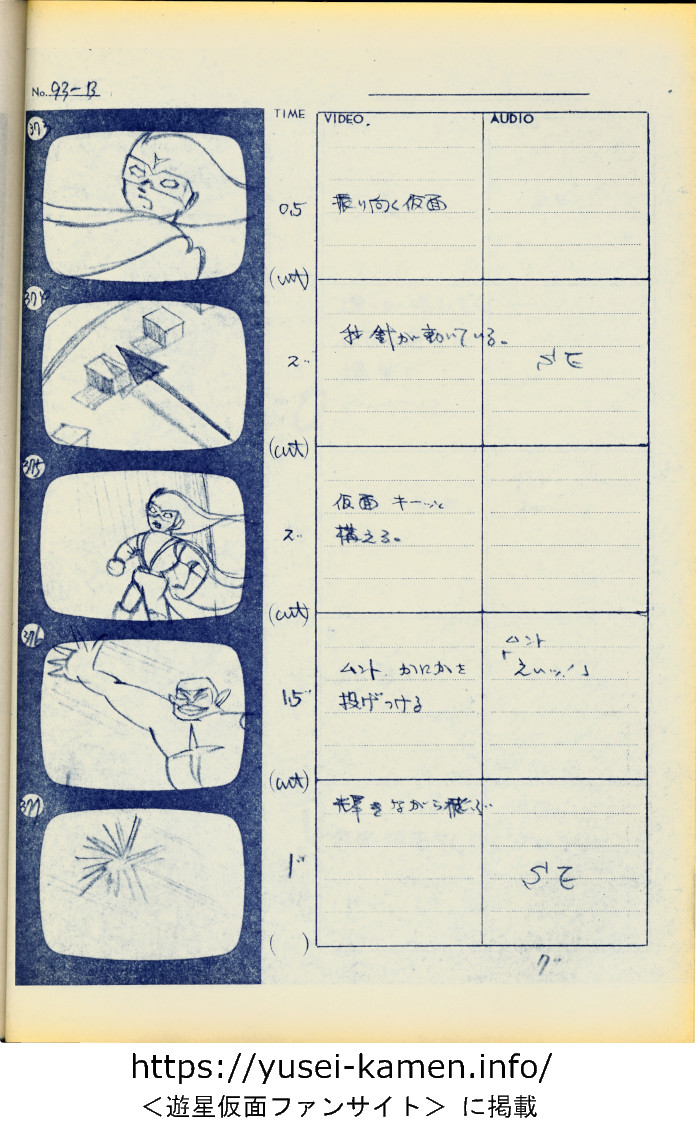 No. 93-B
TIME
VIDEO.
AUDIO
373
0.5
振り向く仮面
(cut)
374
2"
秒針が動いている。
SE
(cut)
375
2"
仮面 キーッと
構える。
(cut)
376
1.5"
ムント なにかを
投げつける
ムント
「えいッ!」
(cut)
377
1"
輝きながら飛ぶ
SE
( )
7"
https://yusei-kamen.info/
＜遊星仮面ファンサイト＞ に掲載